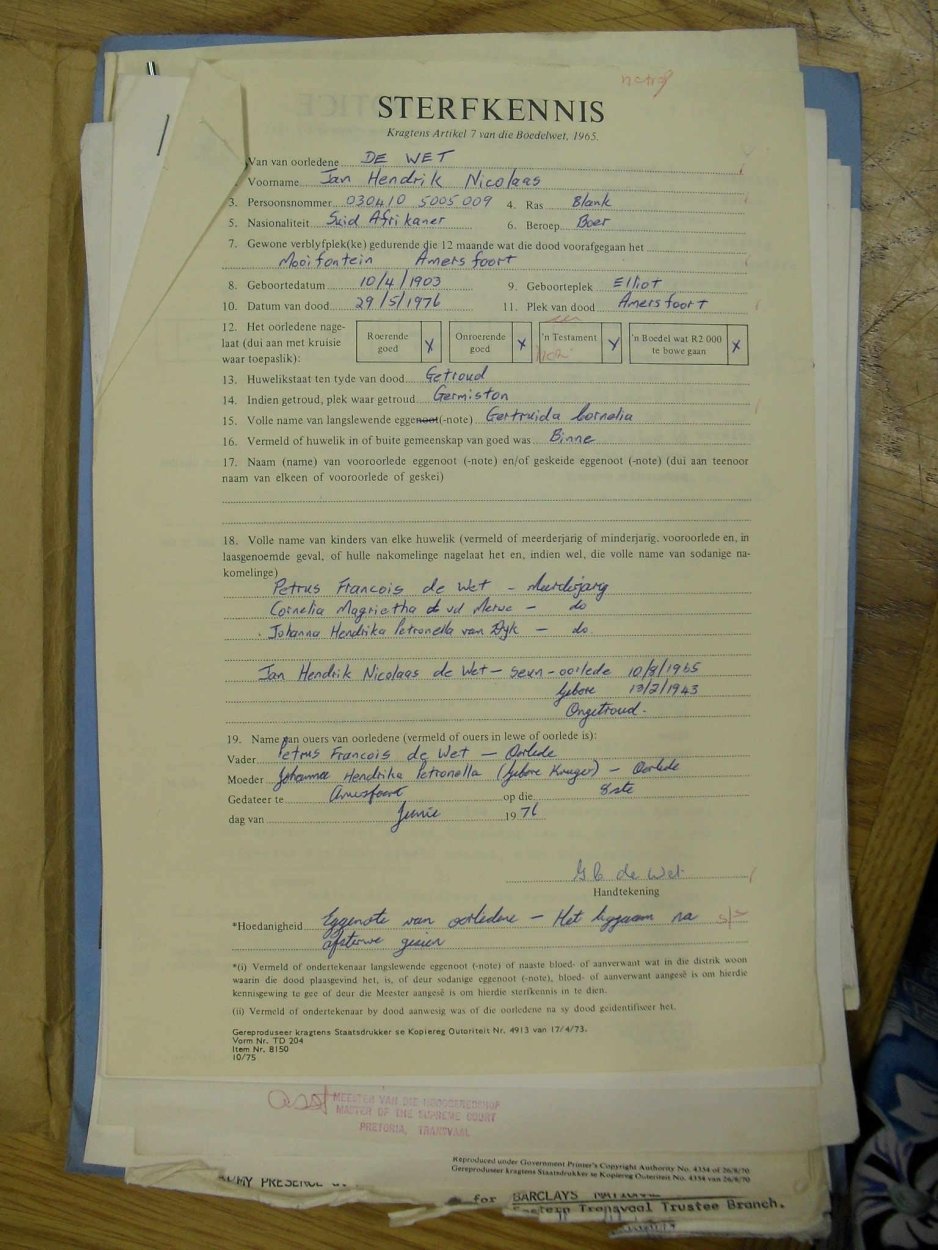 STERFKENNIS
Kragtens Artikel 7 van die Boedelwet, 1965.
Van van oorledene DE WET
Voorname Jan Hendrik Nicolaas
3. Persoonsnommer 030410 5005 009 4. Ras Blank
5. Nasionaliteit Suid Afrikaner 6. Beroep Boer
7. Gewone verblyfplek(ke) gedurende die 12 maande wat die dood voorafgegaan het
Mooifontein Amersfoort
8. Geboortedatum 10/4/1903 9. Geboorteplek Elliot
10. Datum van dood 29/5/1976 11. Plek van dood Amersfoort
12. Het oorledene nage- Roerende Onroerende 'n Testament 'n Boedel wat R2 000
laat (dui aan met kruisie goed X goed X X te bowe gaan X
waar toepaslik):
13. Huwelikstaat ten tyde van dood Getroud
14. Indien getroud, plek waar getroud Germiston
15. Volle name van langslewende eggenoot(-note) Gertruida Cornelia
16. Vermeld of huwelik in of buite gemeenskap van goed was Binne
17. Naam (name) van vooroorlede eggenoot (-note) en/of geskeide eggenoot (-note) (dui aan teenoor
naam van elkeen of vooroorlede of geskei)
18. Volle name van kinders van elke huwelik (vermeld of meerderjarig of minderjarig, vooroorlede en, in
laasgenoemde geval, of hulle nakomelinge nagelaat het en, indien wel, die volle name van sodanige na-
komelinge)
Petrus Francois de Wet - Meerderjarig
Cornelia Magrietha vd Merwe - do
Johanna Hendrika Petronella van Dyk - do.
Jan Hendrik Nicolaas de Wet - seun - oorlede 10/8/1965
Gebore 13/2/1943
Ongetroud.
19. Name van ouers van oorledene (vermeld of ouers in lewe of oorlede is):
Vader Petrus Francois de Wet - Oorlede
Moeder Johanna Hendrika Petronella (gebore Kruger) - Oorlede
Gedateer te Amersfoort op die 8ste
dag van Junie 1976
G C de Wet
Handtekening
*Hoedanigheid Eggenote van oorledene - Het liggaam na
afsterwe gesien
*(i) Vermeld of ondertekenaar langslewende eggenoot (-note) of naaste bloed- of aanverwant wat in die distrik woon
waarin die dood plaasgevind het, is, of deur sodanige eggenoot (-note), bloed- of aanverwant aangesê is om hierdie
kennisgewing te gee of deur die Meester aangesê is om hierdie sterfkennis in te dien.
(ii) Vermeld of ondertekenaar by dood aanwesig was of die oorledene na sy dood geïdentifiseer het.
Gereproduseer kragtens Staatsdrukker se Kopiereg Outoriteit Nr. 4913 van 17/4/73.
Vorm Nr. TD 204
Item Nr. 8150
10/75
MEESTER VAN DIE HOOGGEREGSHOF
MASTER OF THE SUPREME COURT
PRETORIA, TRANSVAAL
Reproduced under Government Printer's Copyright Authority No. 4354 of 26/8/70
Gereproduseer kragtens Staatsdrukker se Kopiereg Outoriteit No. 4354 van 26/8/70
MY PRESENCE
for BARCLAYS NATIONAL
Eastern Transvaal Trustee Branch.